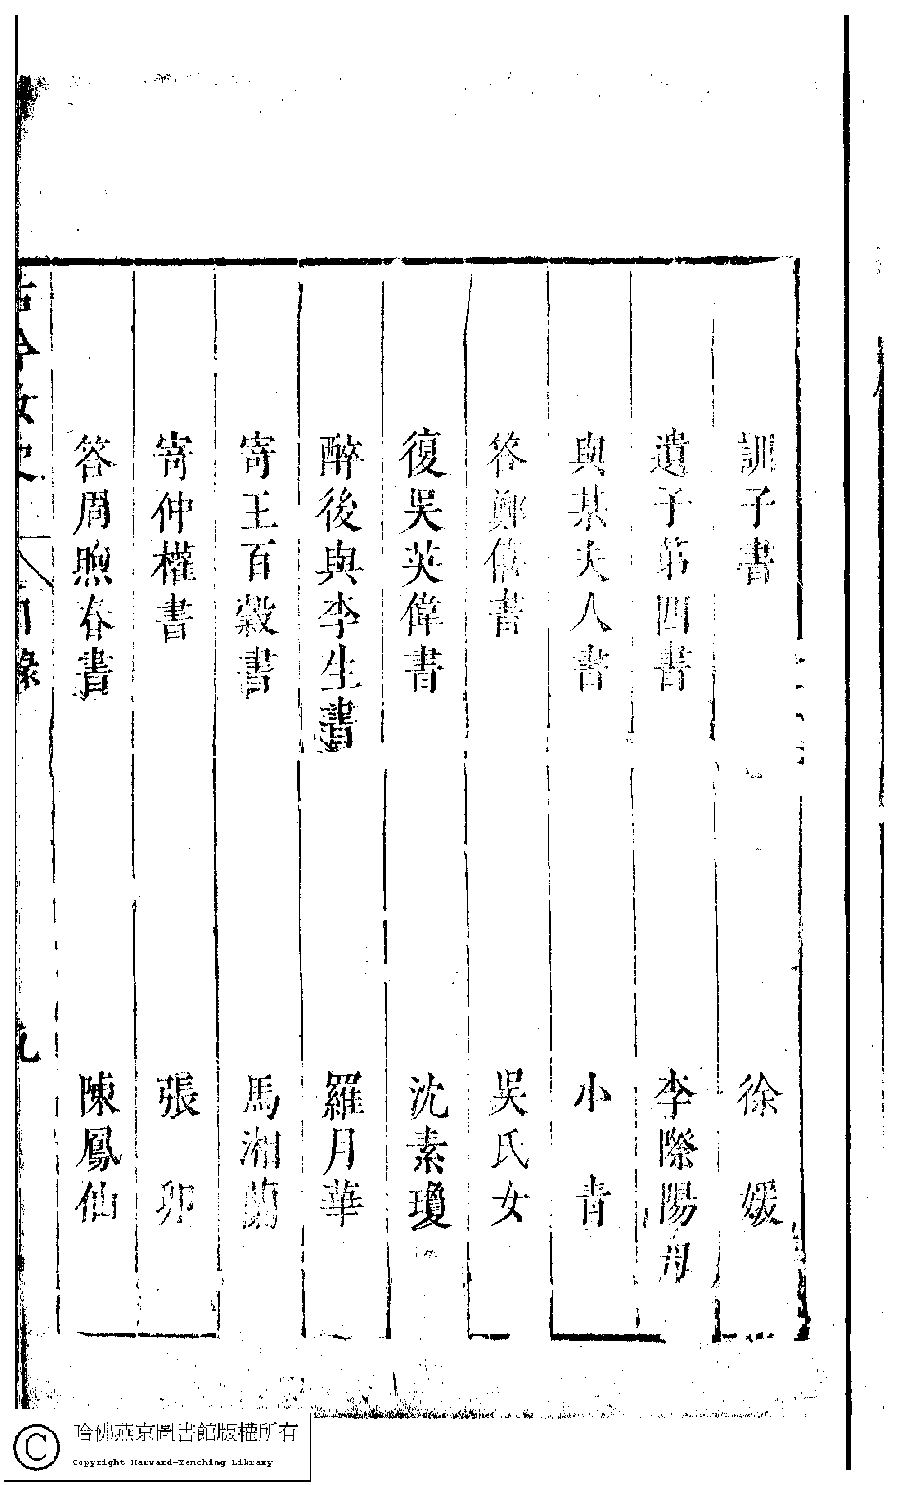 訓子書 徐媛
遺子第四書 李際陽母
與某夫人書 小青
答鄭僖書 吳氏女
復吴英偉書 沈素瓊
醉後與李生書 羅月華
寄王百穀書 馬湘蘭
寄仲權書 張卯
答周煦春書 陳鳳仙
古今女史 目錄 九
哈佛燕京圖書館版權所有
Copyright Harvard-Yenching Library